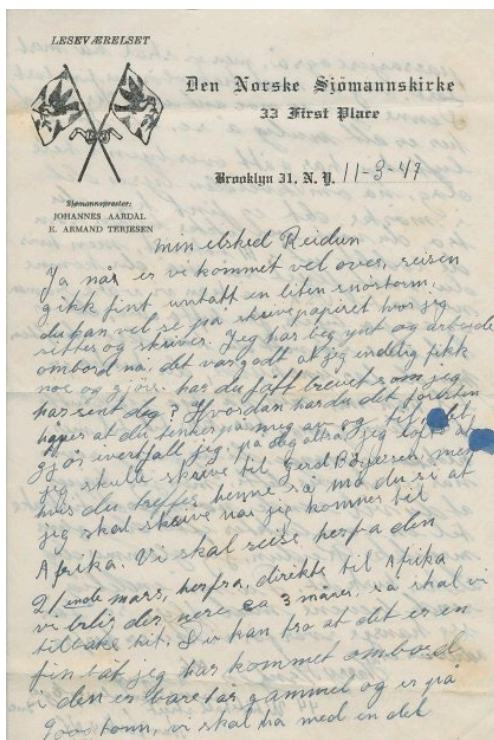 LESEVÆRELSET
Den Norske Sjömannskirke
33 First Place
Brooklyn 31, N. Y. 11-3-47
Sjømannsprester:
JOHANNES AARDAL
E. ARMAND TERJESEN
min elsked Reidun
Ja når er vi kommet vel over, reisen
gikk fint untatt en liten snöstorm,
du kan vel se på skrivepapiret hvor jeg
sitter og skriver. Jeg har beg ynt og arbeide
ombord nå. det var godt at jeg endelig fikk
noe og gjöre. har du fått brevet som jeg
har sent deg? Hvordan har du det foresten
håper at du tenker på meg av og til, det
gjör ivertfall jeg på deg altså. jeg lofte at
jeg skulle skrive til Gerd men
hvis du treffer henne så må du si at
jeg skal skrive når jeg kommer til
Afrika. Vi skal reise herfra den
21 ende mars, herfra, direkte til Afrika
vi blir der nere ca 3 måner, så skal vi
tilbake hit. Du kan tro at det er en
fin båt jeg har kommet ombord
i den er bare år gammel og er på
tonn, vi skal ha med en del